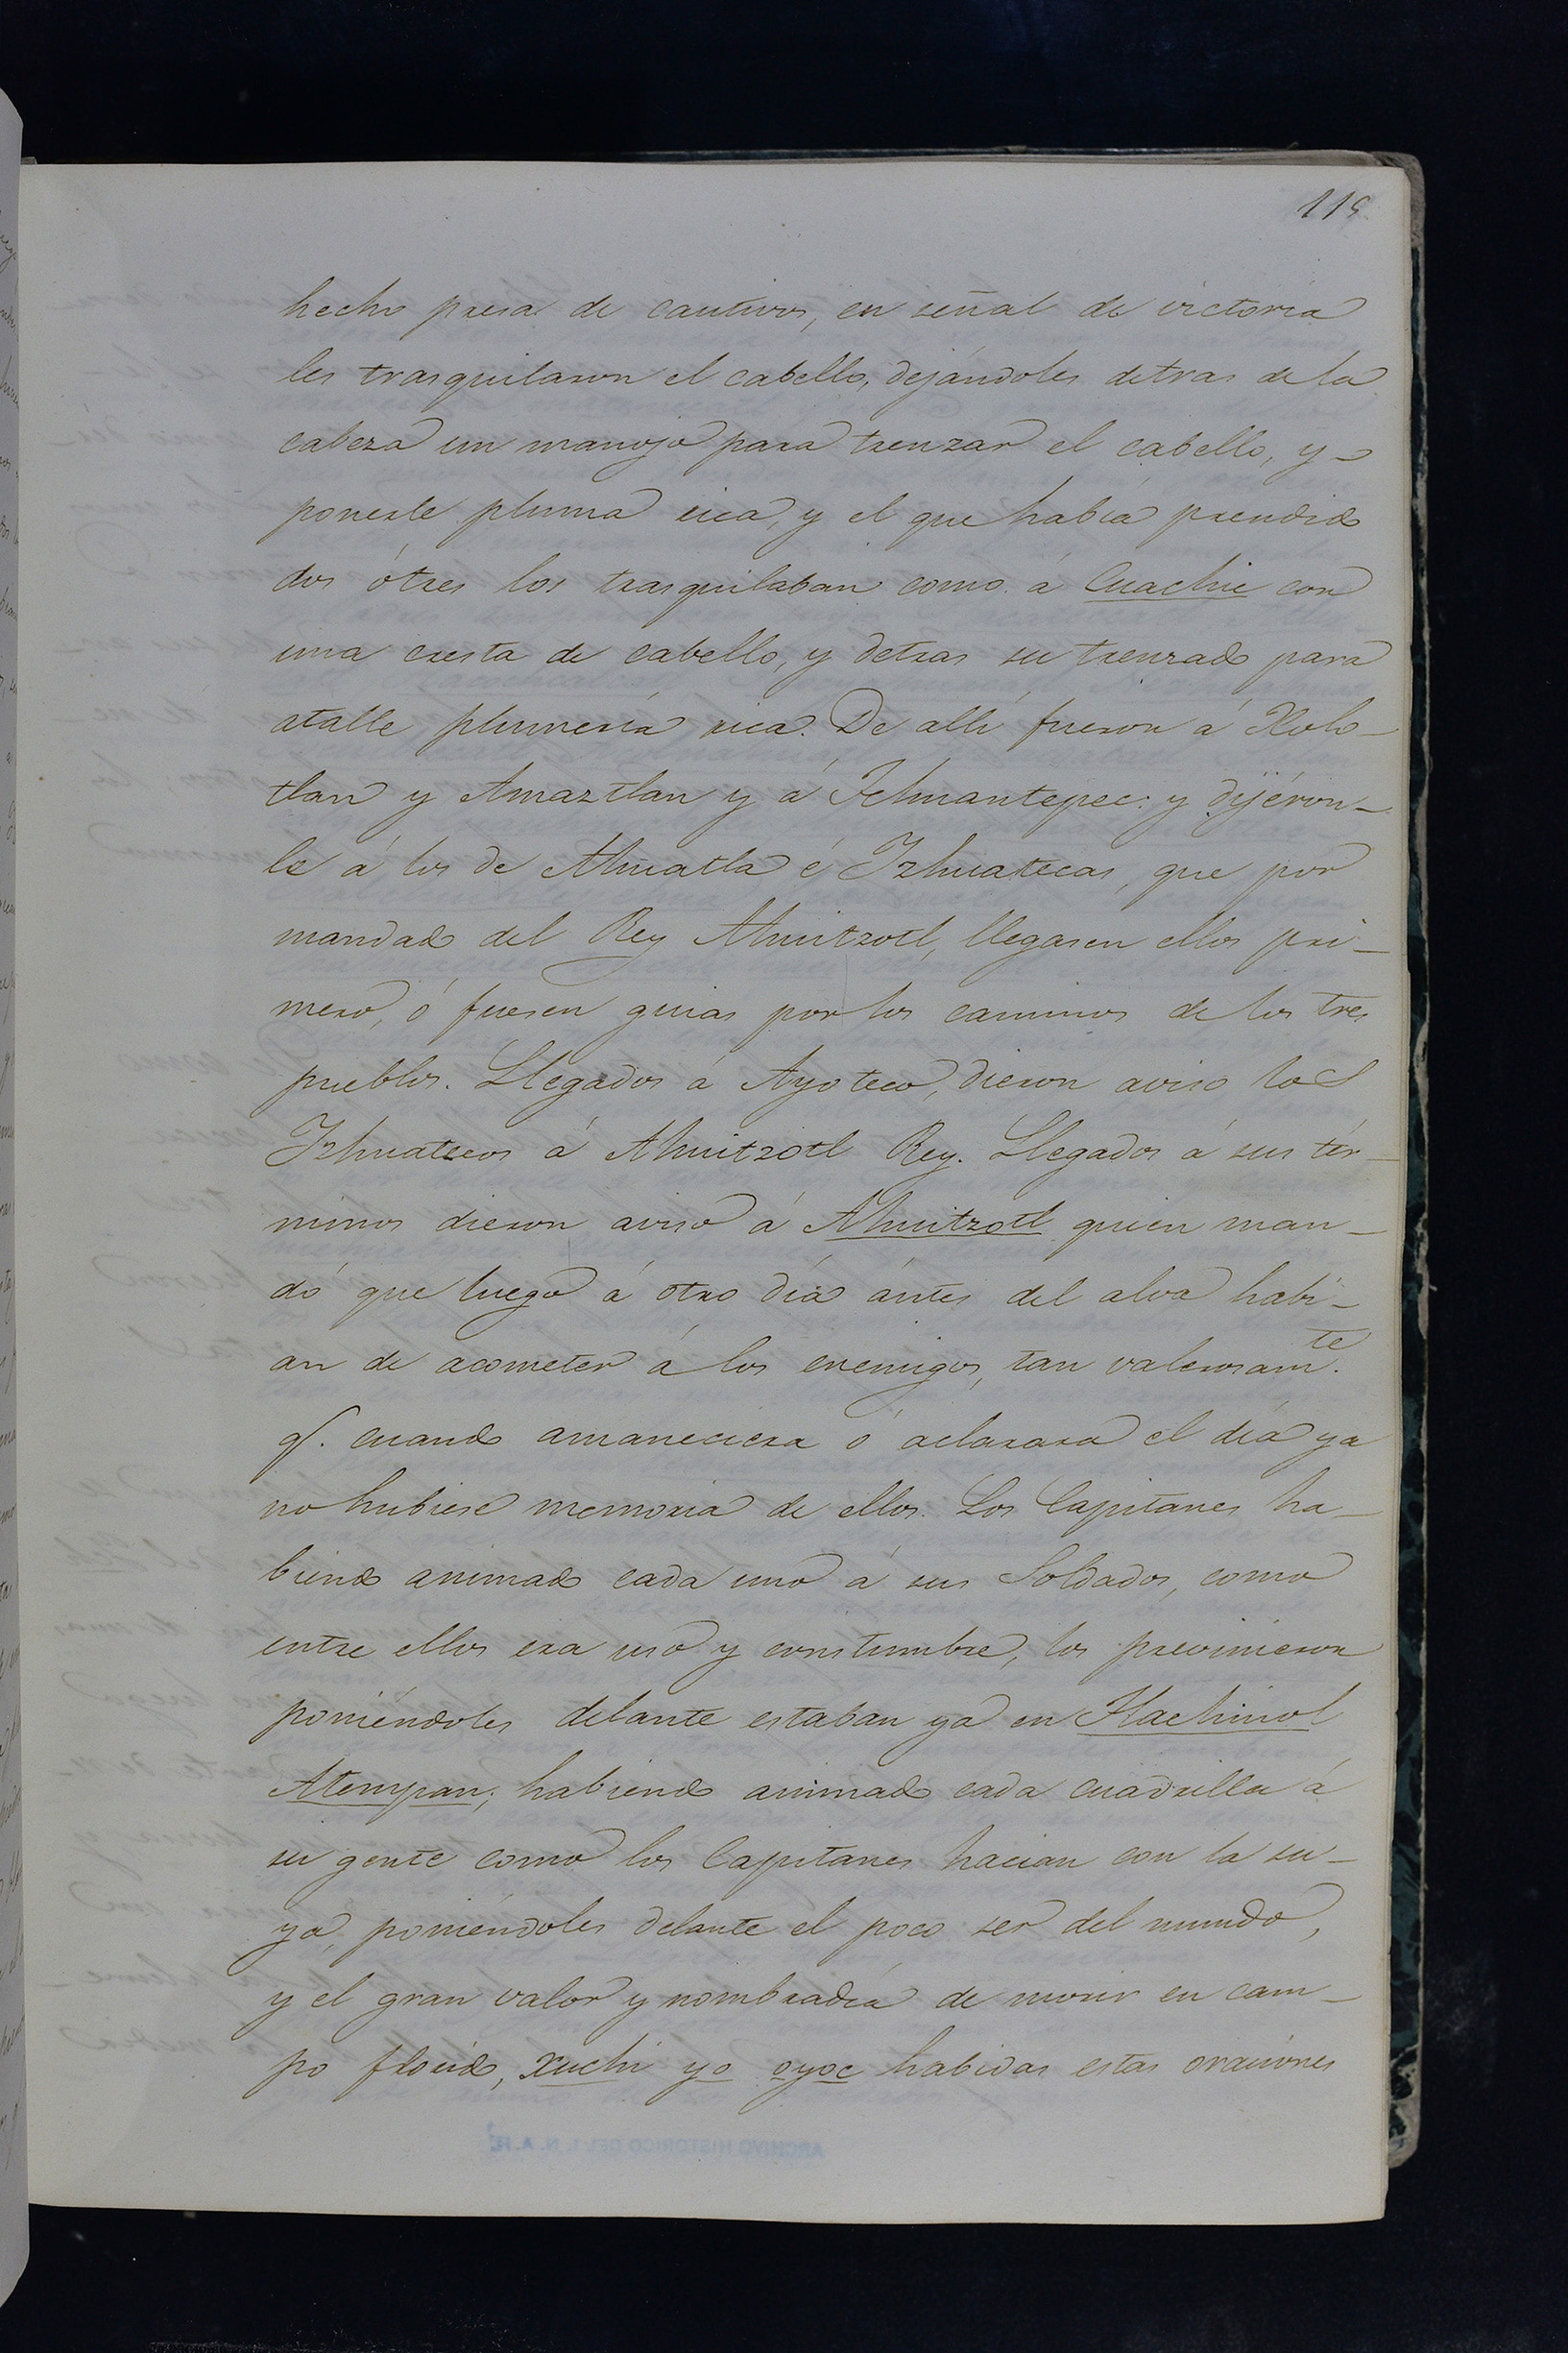 115
hecho presa de cautivos, en señal de victoria
les trasquilaron el cabello, dejándoles detras de la
cabeza un manojo para trenzar el cabello, y
ponerle pluma rica, y el que había prendido
dos ó tres los trasquilaban como á Cuachic con
una cresta de cabello, y detras su trenzado para
atalle plumería rica. De allí fueron á Xolo-
tlan y Amaztlan y á Tehuantepec: y dijéron-
le á los de Ahuatla é Izhuatecas, que por
mandado del Rey Ahuitzotl, llegasen ellos pri-
mero, ó fuesen guias por los caminos de los tres
pueblos. Llegados á Ayoteco, dieron aviso los
Izhuatecos á Ahuitzotl Rey. Llegados á sus tér-
minos dieron aviso á Ahuitzotl quien man-
dó que luego á otro día ántes del alva habi-
an de acometer á los enemigos, tan valerosam.te
q. cuando amaneciera ó aclarara el día ya
no hubiese memoria de ellos. Los Capitanes ha-
biendo animado cada uno á sus Soldados, como
entre ellos era uso y constumbre, los previnieron
poniéndoles delante estaban ya en Tlachinol
Atempan; habiendo animado cada cuadrilla á
su gente como los Capitanes hacian con la su-
ya, poniéndoles delante el poco ser del mundo,
y el gran valor y nombradía de morir en cam-
po florido, xuchi yo oyoc habidas estas oraciones
ARCHIVO HISTORICO DEL I. N. A. H.